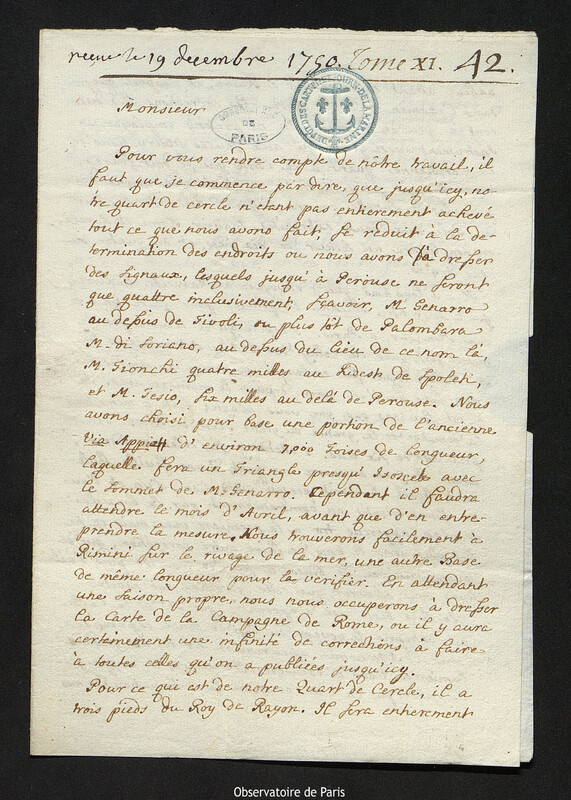 recue le 19 decembre 1750. Tome XI. 42.
DE
PARIS
Monsieur
Pour vous rendre compte de nôtre travail, il
faut que je commence par dire, que jusqu'icy, no-
tre quart de cercle n'etant pas entierement achevé
tout ce que nous avons fait, se reduit à la de-
termination des endroits ou nous avons à dresser
des signaux, lesquels jusqu'à Perouse ne seront
que quattre inclusivement, sçavoir, M. Genarro
au dessus de Tivoli, ou plus tôt de Palombara
M. di Soriano, au dessus du lieu de ce nom là,
M. Fionchi quatre milles au sudest de Spoleti,
et M. Tesio, six milles au delà de Perouse. Nous
avons choisi pour base une portion de l'ancienne
Via Appia d'environ 7,000 Toises de longueur,
laquelle fera un Triangle presqu'Isoscele avec
le sommet de M. Genarro. Cependant il faudra
attendre le mois d'Avril, avant que d'en entre-
prendre la mesure. Nous trouverons facilement à
Rimini sur le rivage de la mer, une autre Base
de même longueur pour la verifier. En attendant
une saison propre, nous nous occuperons à dresser
la Carte de la Campagne de Rome, ou il y aura
certainement une infinité de corrections à faire
à toutes celles qu'on a publiées jusqu'icy.
Pour ce qui est de notre Quart de Cercle, il a
trois pieds du Roy de Rayon. Il sera entierement
Observatoire de Paris